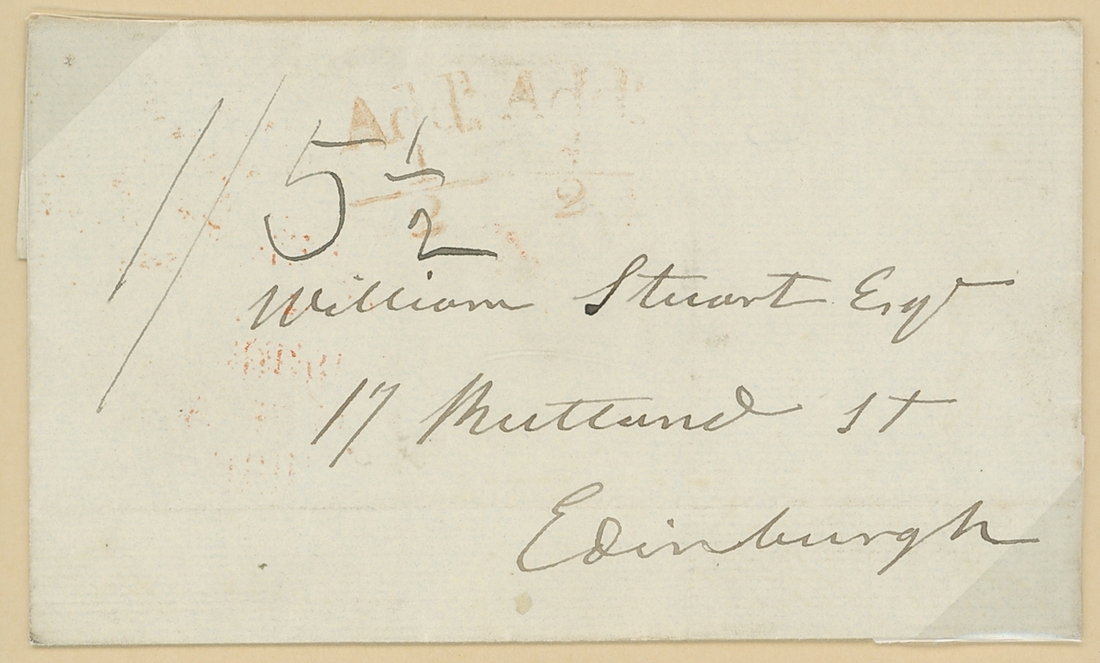 // 5 1/2
William Stuart Esqr
17 Rutland St
Edinburgh